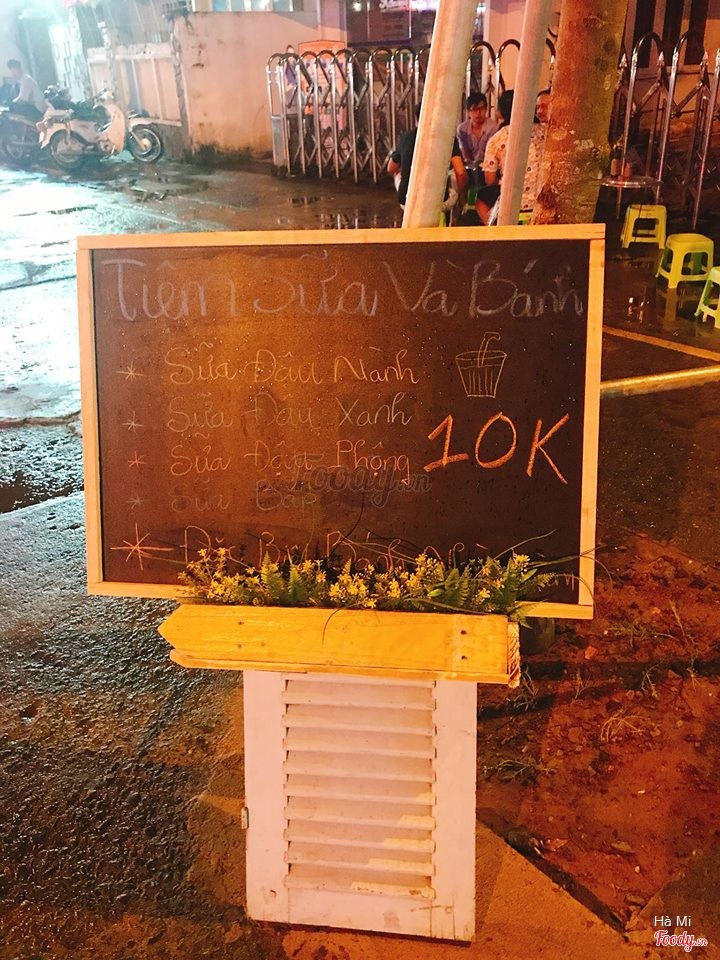 Tiệm Sữa Và Bánh
* Sữa Đậu Nành
* Sữa Đậu Xanh
* Sữa Đậu Phộng
10K
* Sữa Bắp
* Đặc Biệt Bánh
Foody.vn
Hà Mi
Foody.vn